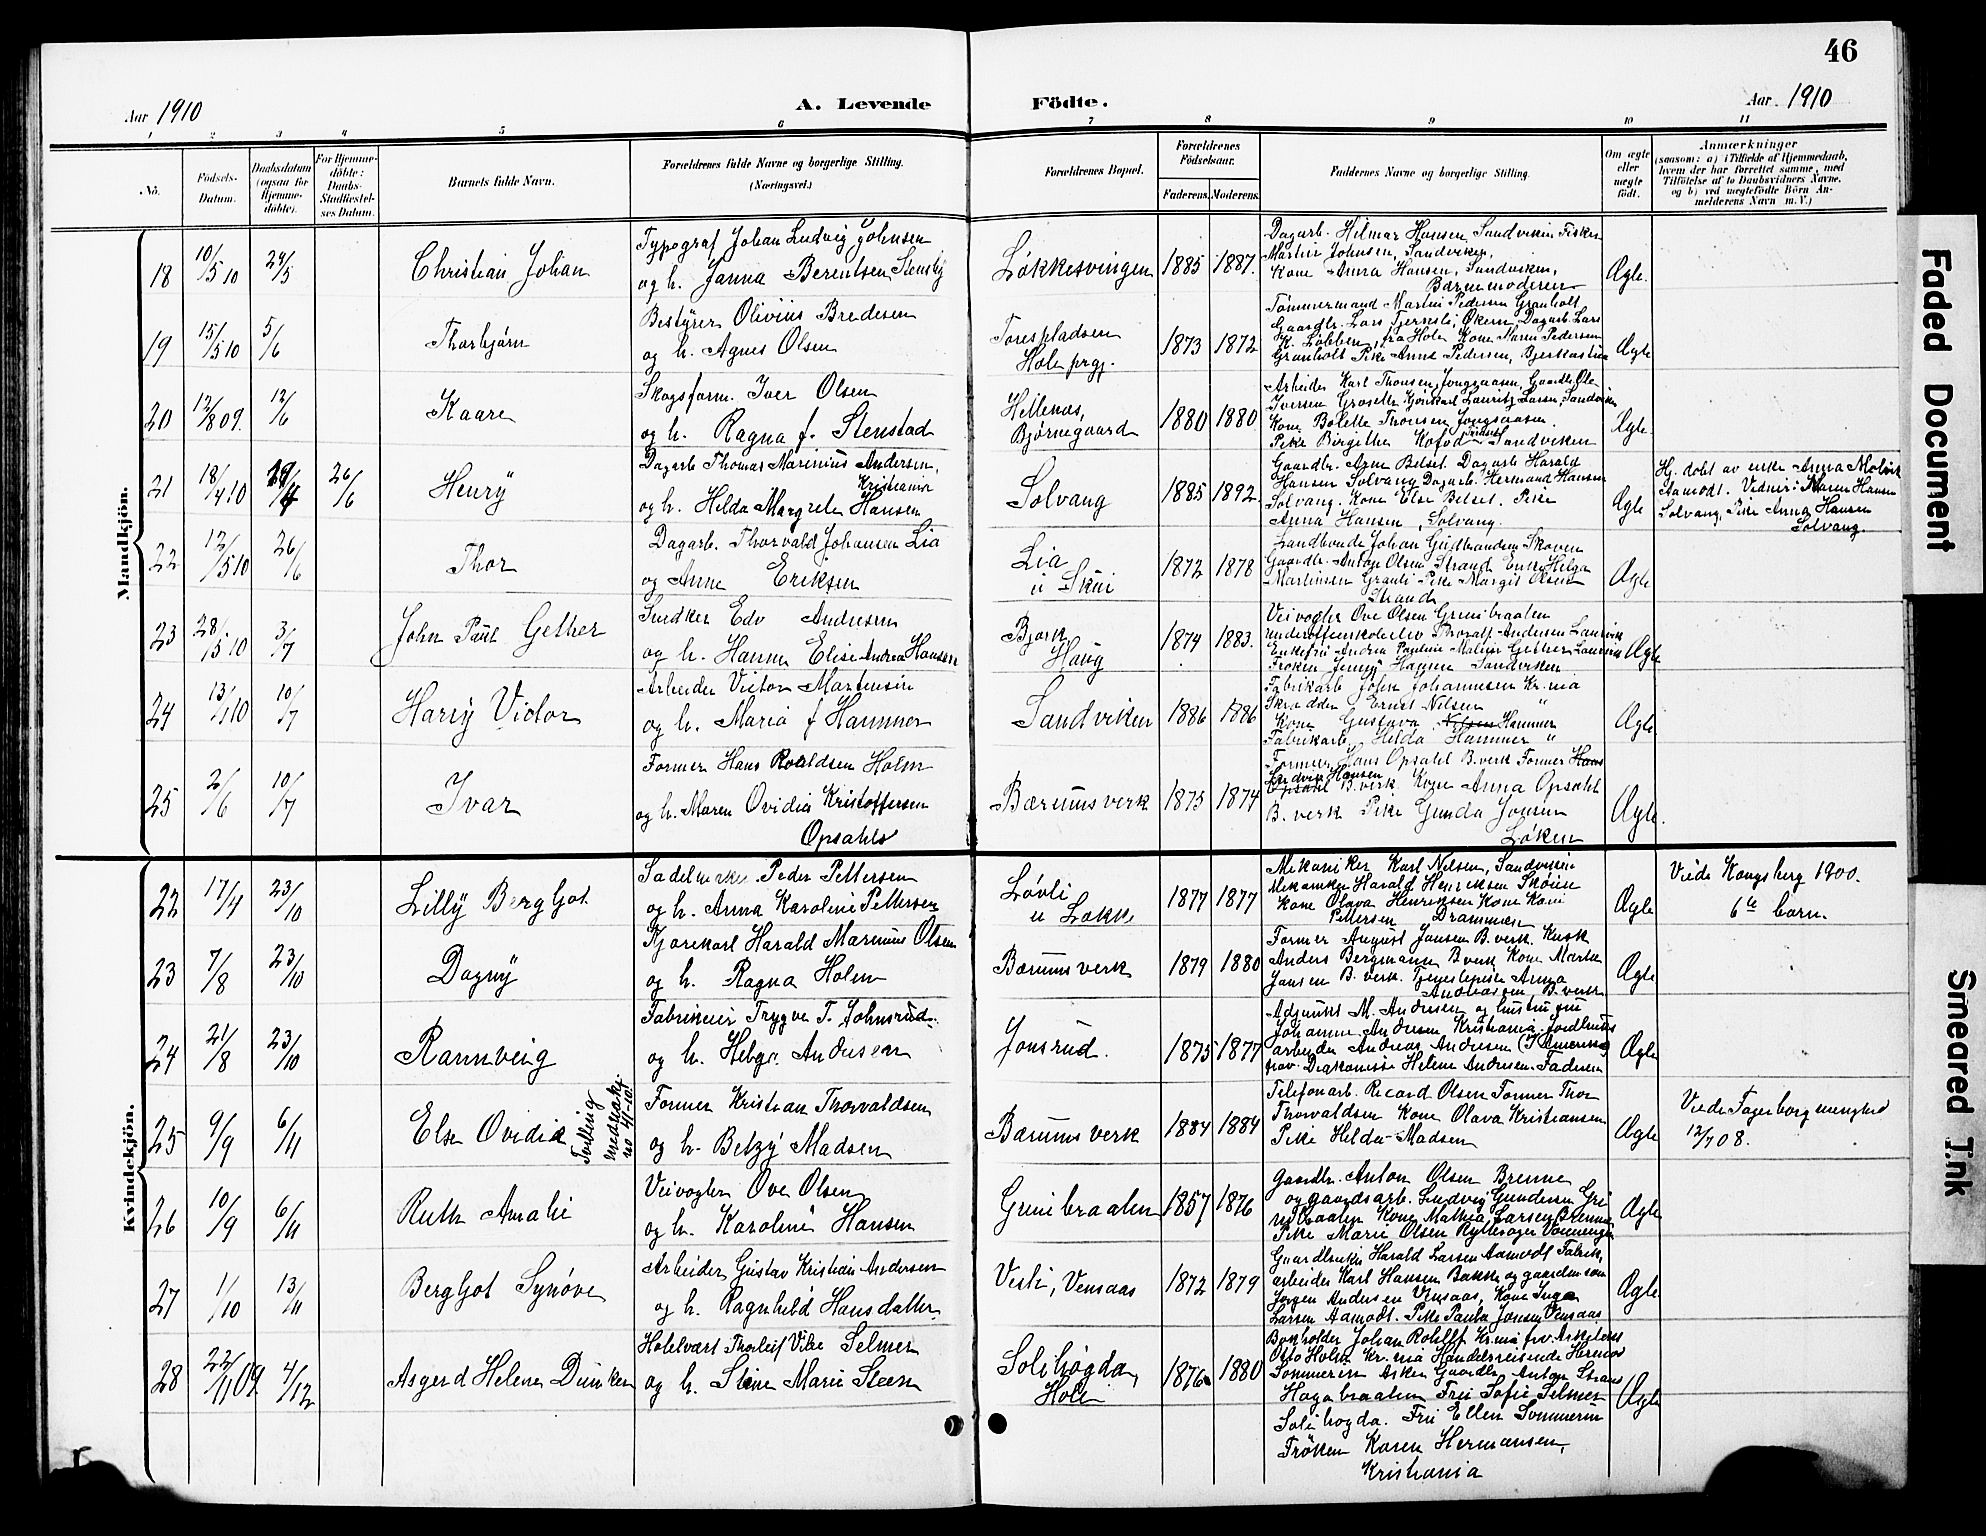 46
Aar 1910
A. Levende
Födte.
Aar 1910
1 2 3 4 5 6 7 8 9 10 11
No.
Födsels-
Datum.
Daabsdatum
(ogsaa for
Hjemme-
döbte).
For Hjemme-
döbte:
Daabs-
Stadfæstel-
ses Datum.
Barnets fulde Navn.
Forældrenes fulde Navne og borgerlige Stilling.
(Næringsvei.)
Forældrenes Bopæl.
Forældrenes
Födselsaar.
Faderens. Moderens.
Faddernes Navne og borgerlige Stilling.
Om ægte
eller
uægte
födt.
Anmærkninger
(saasom: a) i Tilfælde af Hjemmedaab,
hvem der har forrettet samme, med
Tilföielse af to Daabsvidners Navne,
og b) ved uegtefödte Börn An-
melderens Navn m. V.)
Mandkjön.
18 10/5 10 29/5 Christian Johan
Typograf Johan Ludvig Johnsen
og h. Janna Berentsen Stensby
Løkkesvingen 1885 1887.
Dagarb. Hilmar Hansen, Sandviken Fisker
Martin Johnsen, Sandviken,
Kone Anna Hansen, Sandviken,
Barnemoderen
Ægte.
19 15/5 10 5/6 Thorbjørn
Bestyrer Olivius Bredesen
og h. Agnes Olsen
Torespladsen
Hole prgj.
1873 1872
Tømmermand Martin Pedersen Granholt
Gaardbr. Lars Tjernsli, Økern Dagarb. Lars
K. Løbben, fra Hole Kone Maren Pedersen
Granholt Pike Anna Pedersen, Bjerkastua
Ægte
20 12/8 09. 12/6 Kaare
Skogsform. Iver Olsen
og h. Ragna f. Stenstad
Hellenæs,
Bjørnegaard
1880 1880
Arbeider Karl Thonsen, Jongsaasen, Gaardbr. Ole
Iversen Grosetter Kjørekarl Lauritz Larsen, Sandviken
Kone Bolette Thonsen Jongsaasen.
Pike Birgithe Kofod Sandviken
Ægte.
21 18/4 10 26/6 Henry
Dagarb Thomas Marinius Andersen,
Kristiania
og h. Hilda Margrete Hansen
Solvang 1885 1892
Gaardbr. Arne Belset. Dagarb Harald
Hansen Solvang Dagarb. Hermand Hansen
Solvang. Kone Else Belset. Pike
Anna Hansen, Solvang.
Ægte
Hj. døbt av enke Anna Molvik
Aamodt. Vidner: Maren Hansen
Solvang, Pike Anna Hansen
Solvang.
22 12/5 10 26/6 Thor
Dagarb. Thorvald Johansen Lia
og Anne Eriksen
Lia
u Skui
1872 1878
Landbonde Johan Gudbrandsen Skoven
Gaardbr. Anton Olsen Strand Enke Helga
Martinsen Granli Pike Margit Olsen
Strand
Ægte
23 28/5 10 3/7 John Paul Gether
Snedker Edv Andresen
og h. Hanna Elise Andrea Hansen
Bjerk
Haug
1874 1883.
Veivogter Ove Olsen Grinibraaten
Underofficerskoleelev Thoralf Andersen Laurvik
Enkefru Andrea Pauline Malvin Gether Laurvik
Frøken Jenny Hanna Sandviken
Ægte
24 13/1 10 10/7 Harry Victor
Arbeider Victor Martensen
og h. Maria f Hammer
Sandviken 1886 1886
Fabrikarb John Johannesen Kr.nia
Skrædder Ernst Nilsen "
Kone Gustava Nilsen Hammer
Fabrikarb. Hilda Hammer "
Ægte.
25 2/6 10/7 Ivar
Former Hans Roaldsen Holm
og h. Maren Ovidia Kristoffersen
Opsahls
Bærums verk 1875 1874
Former Hans Opsahl B.verk Former Hans
Ludvik Hansen
Opsahl B.verk Kone Anna Opsahl
B.verk Pike Gunda Jonsen
Løken
Ægte.
Kvindekjön.
22 17/4 23/10 Lilly Bergljot
Sadelmaker Peder Pettersen
og h. Anna Karoline Pettersen
Løvli
u Løkke
1877 1877
Mekaniker Karl Nilsen, Sandviken
Mekaniker Harald Henriksen Skøien
Kone Olava Henriksen Kone
Pettersen Drammen
Ægte
Viede Kongsberg 1900.
6te barn.
23 7/8 23/10 Dagny
Kjørekarl Harald Marinius Olsen
og h. Ragna Holm
Bærums verk 1879 1880
Former August Jansen B.verk. Kusk
Anders Bergmann B.verk Kone Martha
Jansen B.verk. Tjenestepike Anna
Andreassen B.verk
Ægte
24 21/8 23/10 Rannveig
Fabrikeier Trygve T. Johnsrud
og h. Helga Andersen
Jonsrud. 1875 1877
Adjunkt M. Andersen og hustru fru
Johanne Andersen Kristiania. Jordbruks
arbeider Andreas Andresen (I Amerika)
frøv. Diakonisse Helene Andresen. Faderen
Ægte
25 9/9 6/11 Else Ovidia
Tvilling
med mak.
no 41-10.
Former Kristian Thorvaldsen
og h. Betzy Madsen
Bærums verk 1884 1884
Telefonarb. Ricard Olsen Former Thor
Thorvaldsen Kone Olava Kristiansen
Pike Hilda Madsen
Ægte
Viede Fagerborg menighed
12/7 08.
26 10/9 6/11 Ruth Amalie
Veivogter Ove Olsen
og h. Karoline Hansen
Grinibraaten 1857 1876
Gaardbr. Anton Olsen Brenne
og gaardsarb. Ludvig Gundersen Gri
nibraaten Kone Mathea Larsen Brenne
Pike Marie Olsen Ryttesager Vennengen
Ægte
27 1/10 13/11 Bergljot Synøve
Arbeider Gustav Kristian Andersen
og h. Ragnhild Hansdatter
Vestli, Vensaas 1872 1879
Gaardbruker Harald Larsen Aamodt Fabrik,
arbeider Karl Hansen Bakke og gaardmann
Jørgen Andersen Vensaas, Kone Inga
Larsen Aamodt. Pike Paula Jonsen Vensaas
Ægte
28 22/11 09 4/12 Asgerd Helene Dunker
Hotelvært Thorleif Vibe Selmer
og h. Stine Marie Steen
Solihøgda,
Hole
1876 1880
Bokholder Johan Rohlff Kr.nia frv. Arkitekt
Otto Holm Kr.nia Handelsreisende Herman
Sommerin Asker Gaardbr. Anton Strand
Hagabraaten Fru Sofie Selmer
Solihøgda. Fru Ellen Sommerin
Frøken Karen Hermansen,
Kristiania
Ægte
Faded Document
Smeared Ink